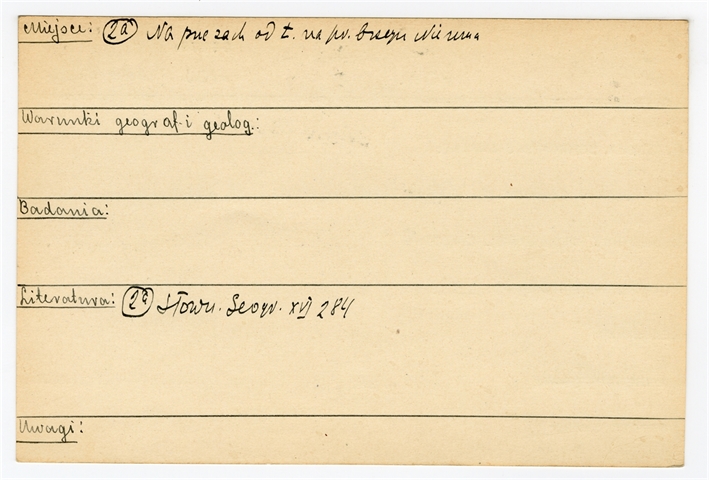 Miejsce: (2a) Na pne zach od Ł. na pr. brzegu Niemna
Warunki geograf. i geolog.:
Badania:
Literatura: (2a) Słown. Geogr. XVI 284
Uwagi: